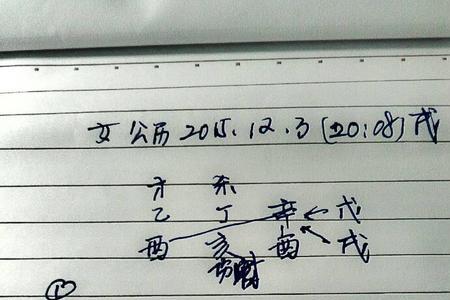 女 公历 2015.12.3 (20:08) 戌
才 杀
乙 丁 辛 ← 戊
酉 亥 酉 戌
①